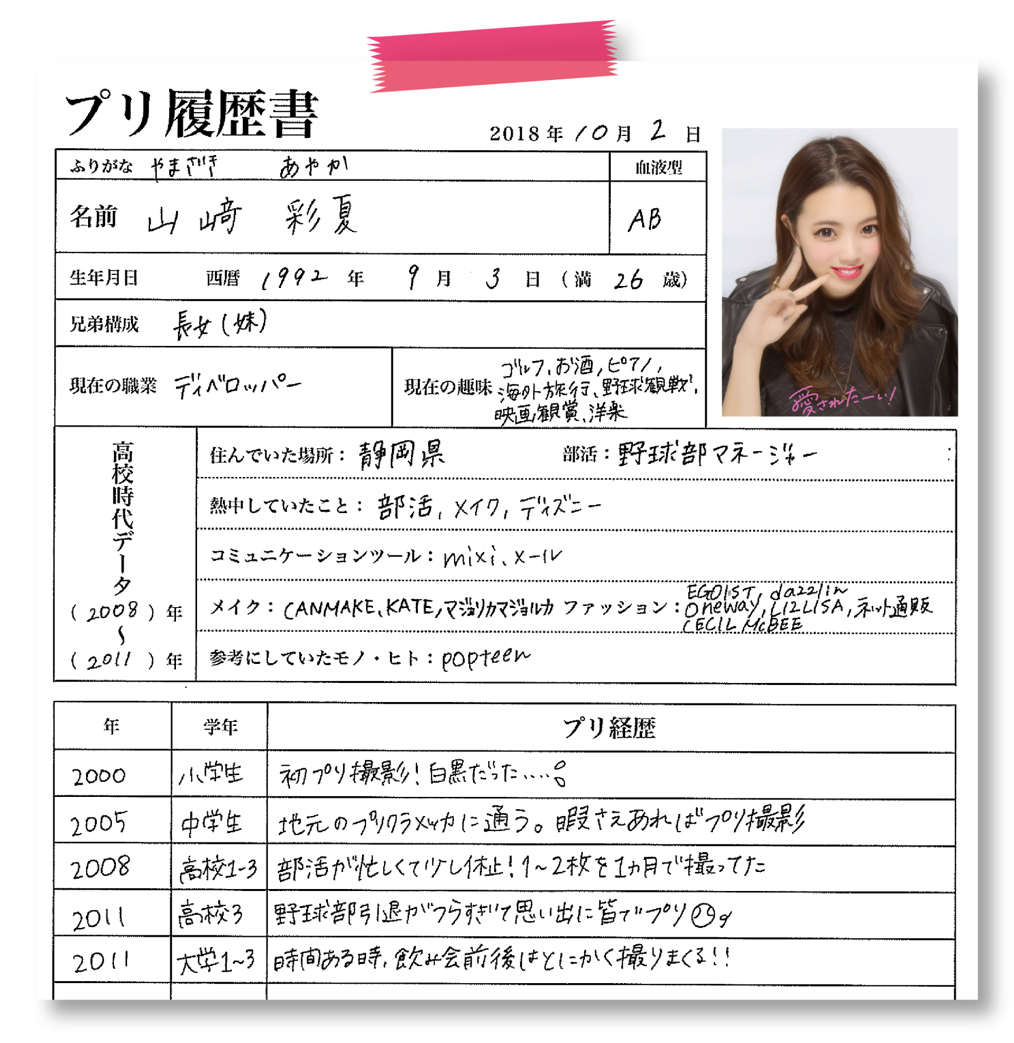 プリ履歴書
2018年10月2日
ふりがな やまざき あやか
血液型
名前 山﨑 彩夏
AB
生年月日 西暦 1992年 9月 3日 (満 26 歳)
兄弟構成 長女(妹)
現在の職業 ディベロッパー
現在の趣味 ゴルフ,お酒,ピアノ,
海外旅行、野球観戦,
映画観賞、洋楽
愛されたーい!
高校時代データ
(2008)年
〜
(2011)年
住んでいた場所:静岡県 部活:野球部マネージャー
熱中していたこと:部活,メイク,ディズニー
コミュニケーションツール:mixi、メール
メイク:CANMAKE、KATE,マジョリカマジョルカ ファッション:EGOIST, dazzlin
oneway, LIZLISA, ネット通販
CECIL McBEE
参考にしていたモノ・ヒト:popteen
年 学年 プリ経歴
2000 小学生 初プリ撮影!白黒だった....
2005 中学生 地元のプリクラメッカに通う。暇さえあればプリ撮影
2008 高校1~3 部活が忙しくて少し休止!1~2枚を1ヵ月で撮ってた
2011 高校3 野球部引退がつらすぎて思い出に皆でプリ
2011 大学1~3 時間ある時,飲み会前後はとにかく撮りまくる!!